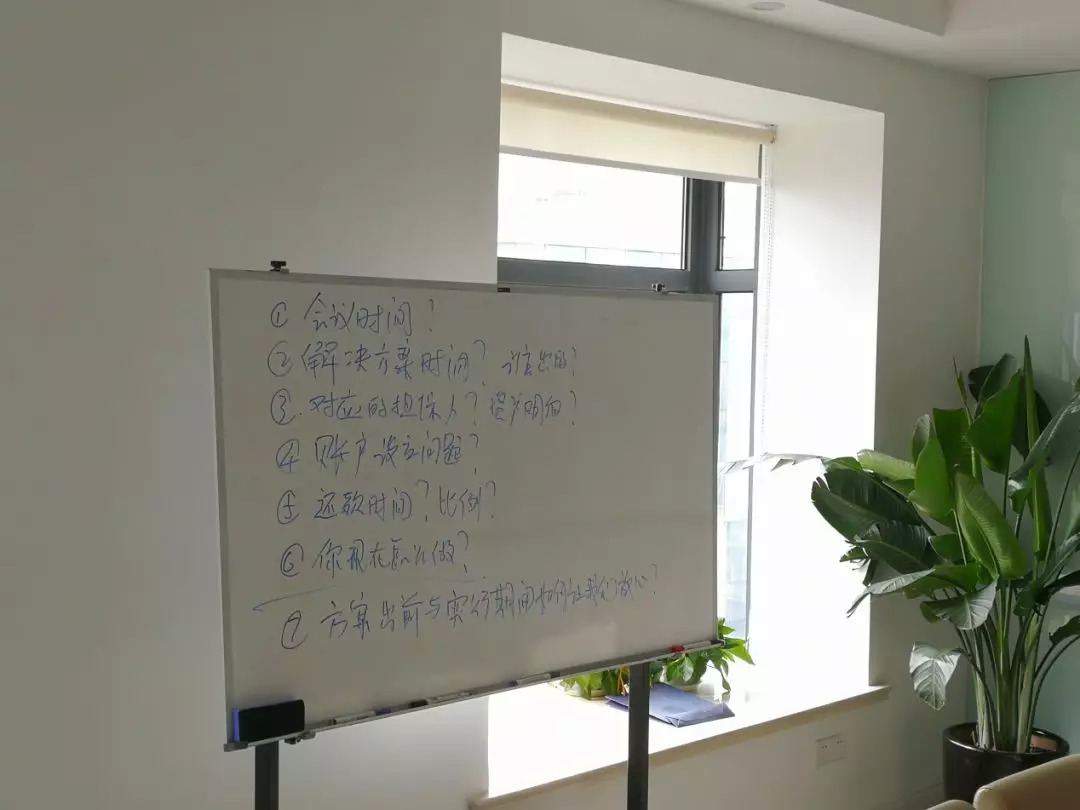 ① 会议时间?
② 解决方案时间? 谁出的?
③ 对应的担保人? 明细?
④ 账户设立问题?
⑤ 还款时间? 比例?
⑥ 你现在怎么做?
⑦ 方案出前与实行期间如何让我们放心?